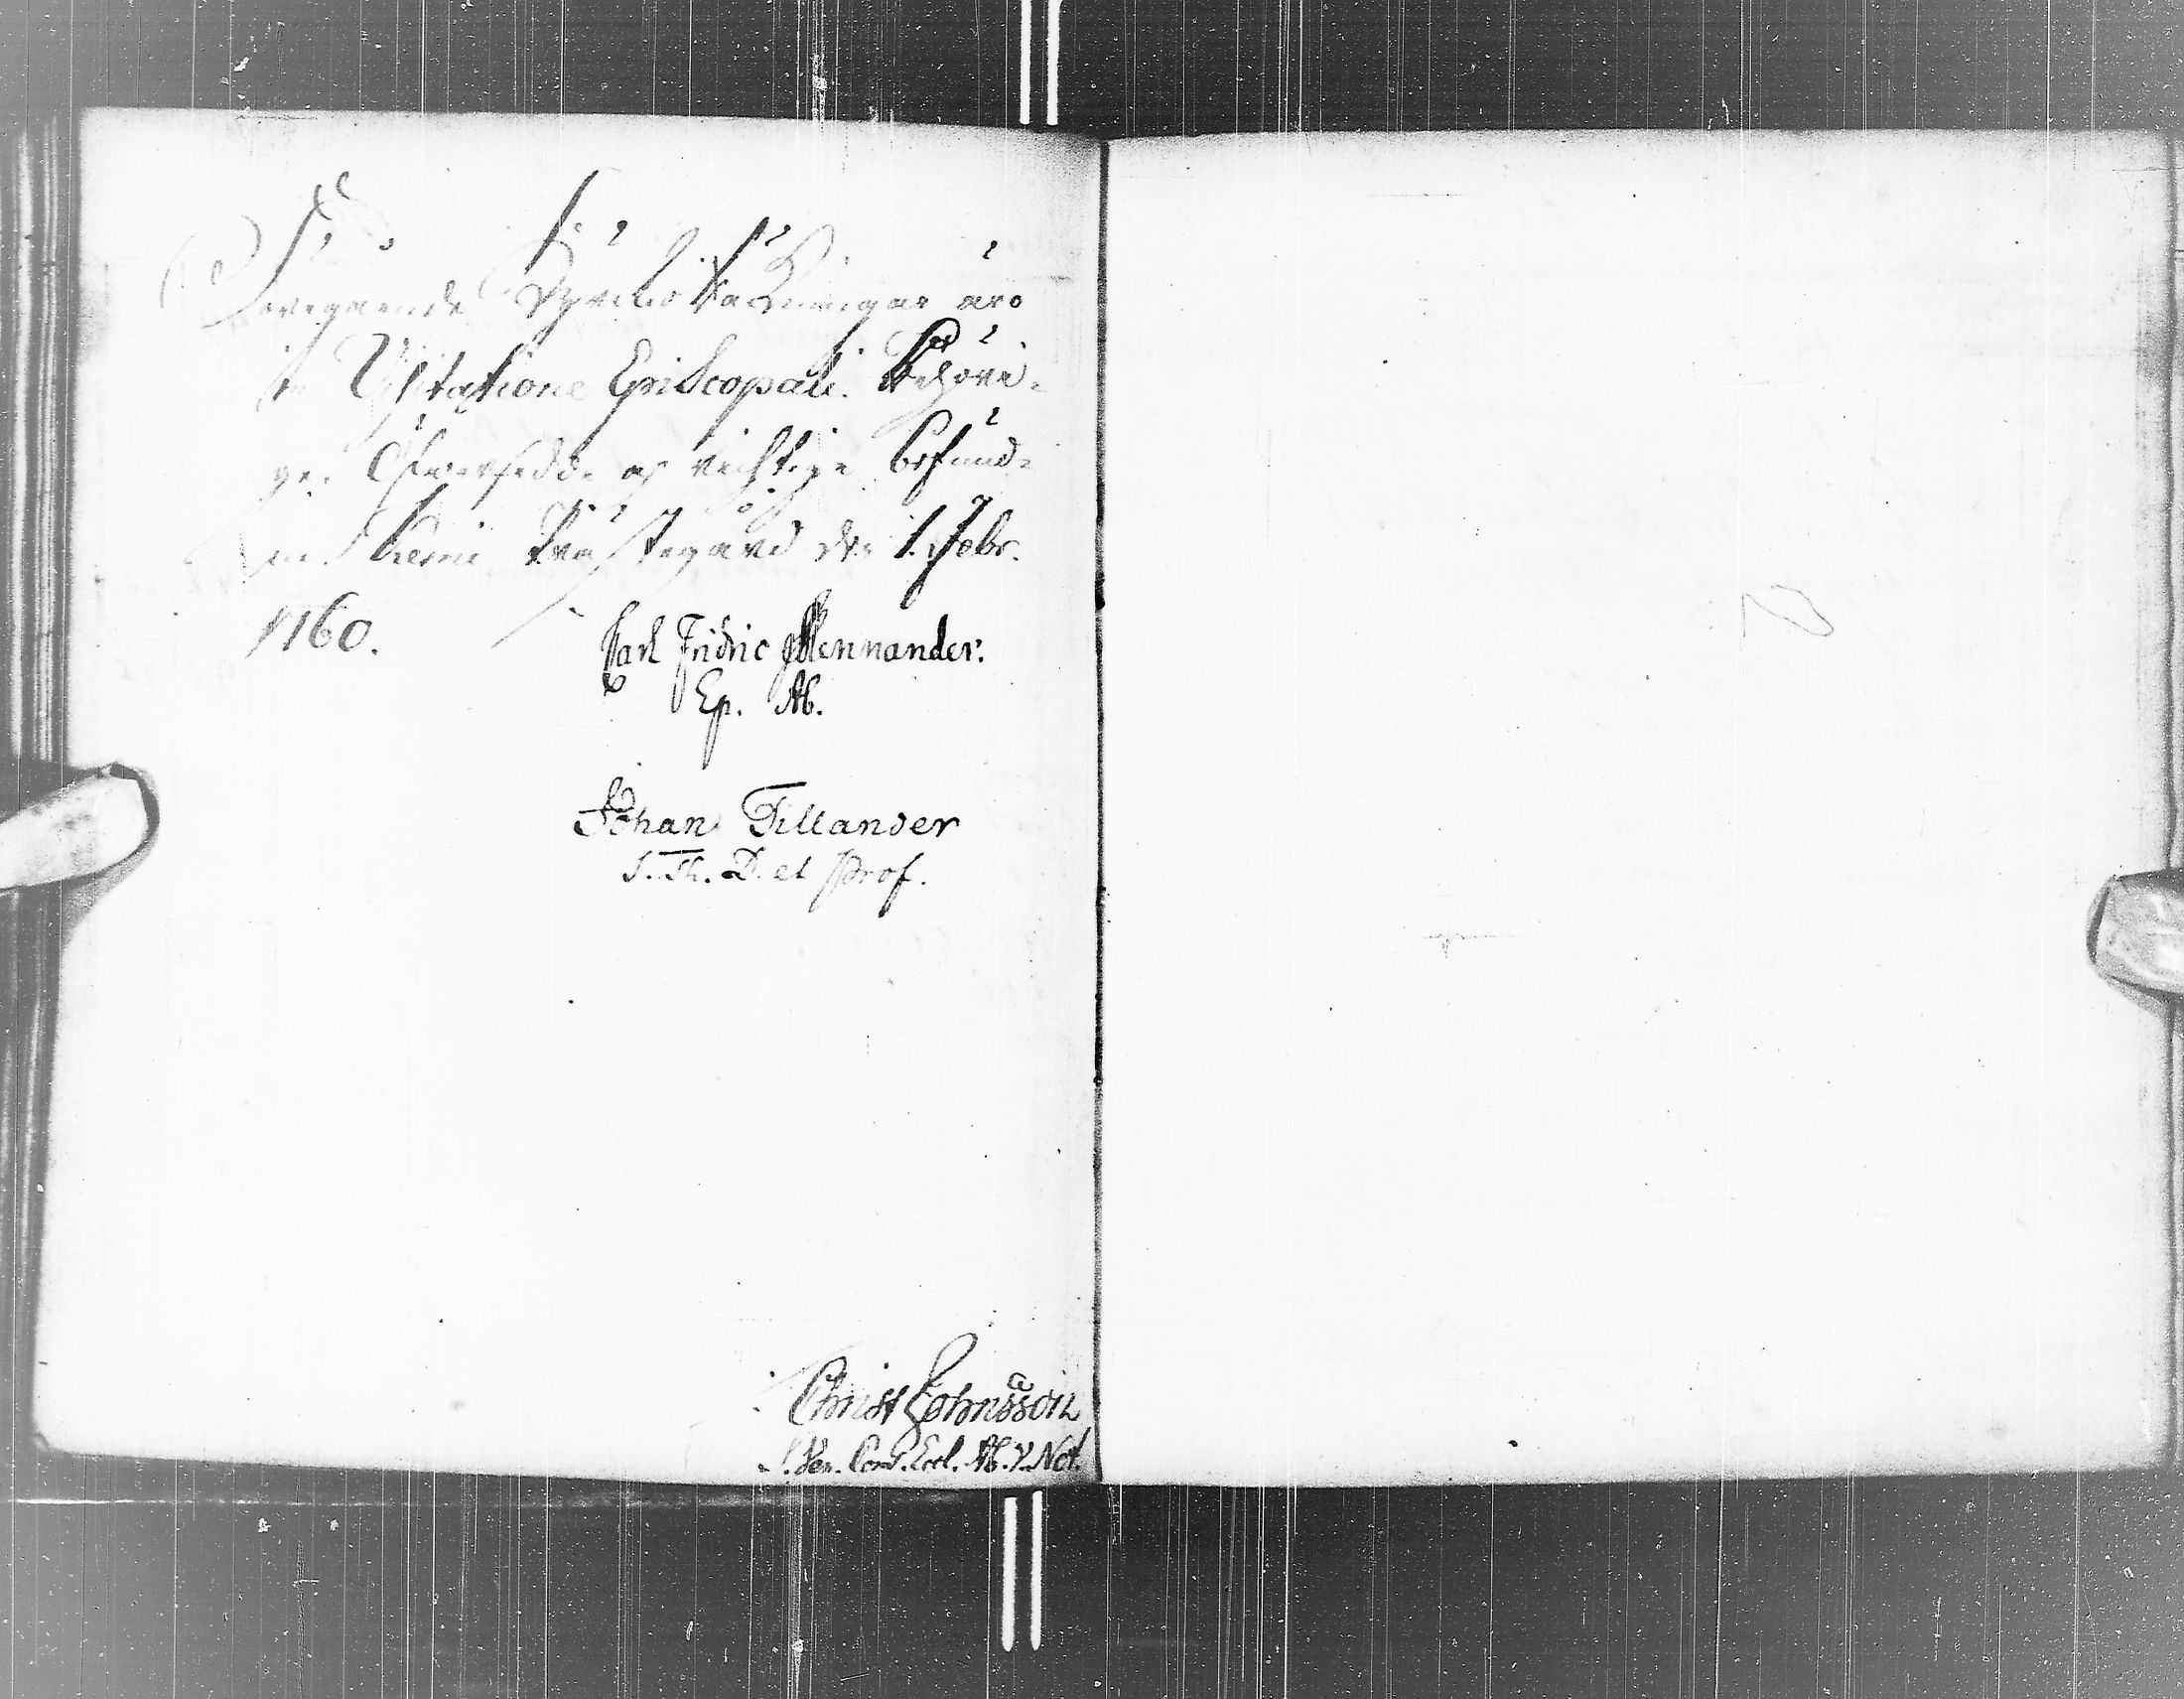 Föregående Kyrkio Räkningar äro
in Visitatione Episcopali behöri-
gen Öfwersedde og richtige befund-
ne. I Kemi Prästegård d. 1. Febr.
1760.
Carl Fridric Mennander.
Ep. Ab.
Johan Tillander
S. Th. D. et Prof.
Christ Johnsson
Ven. Cons. Eccl. Ab. V. Not.